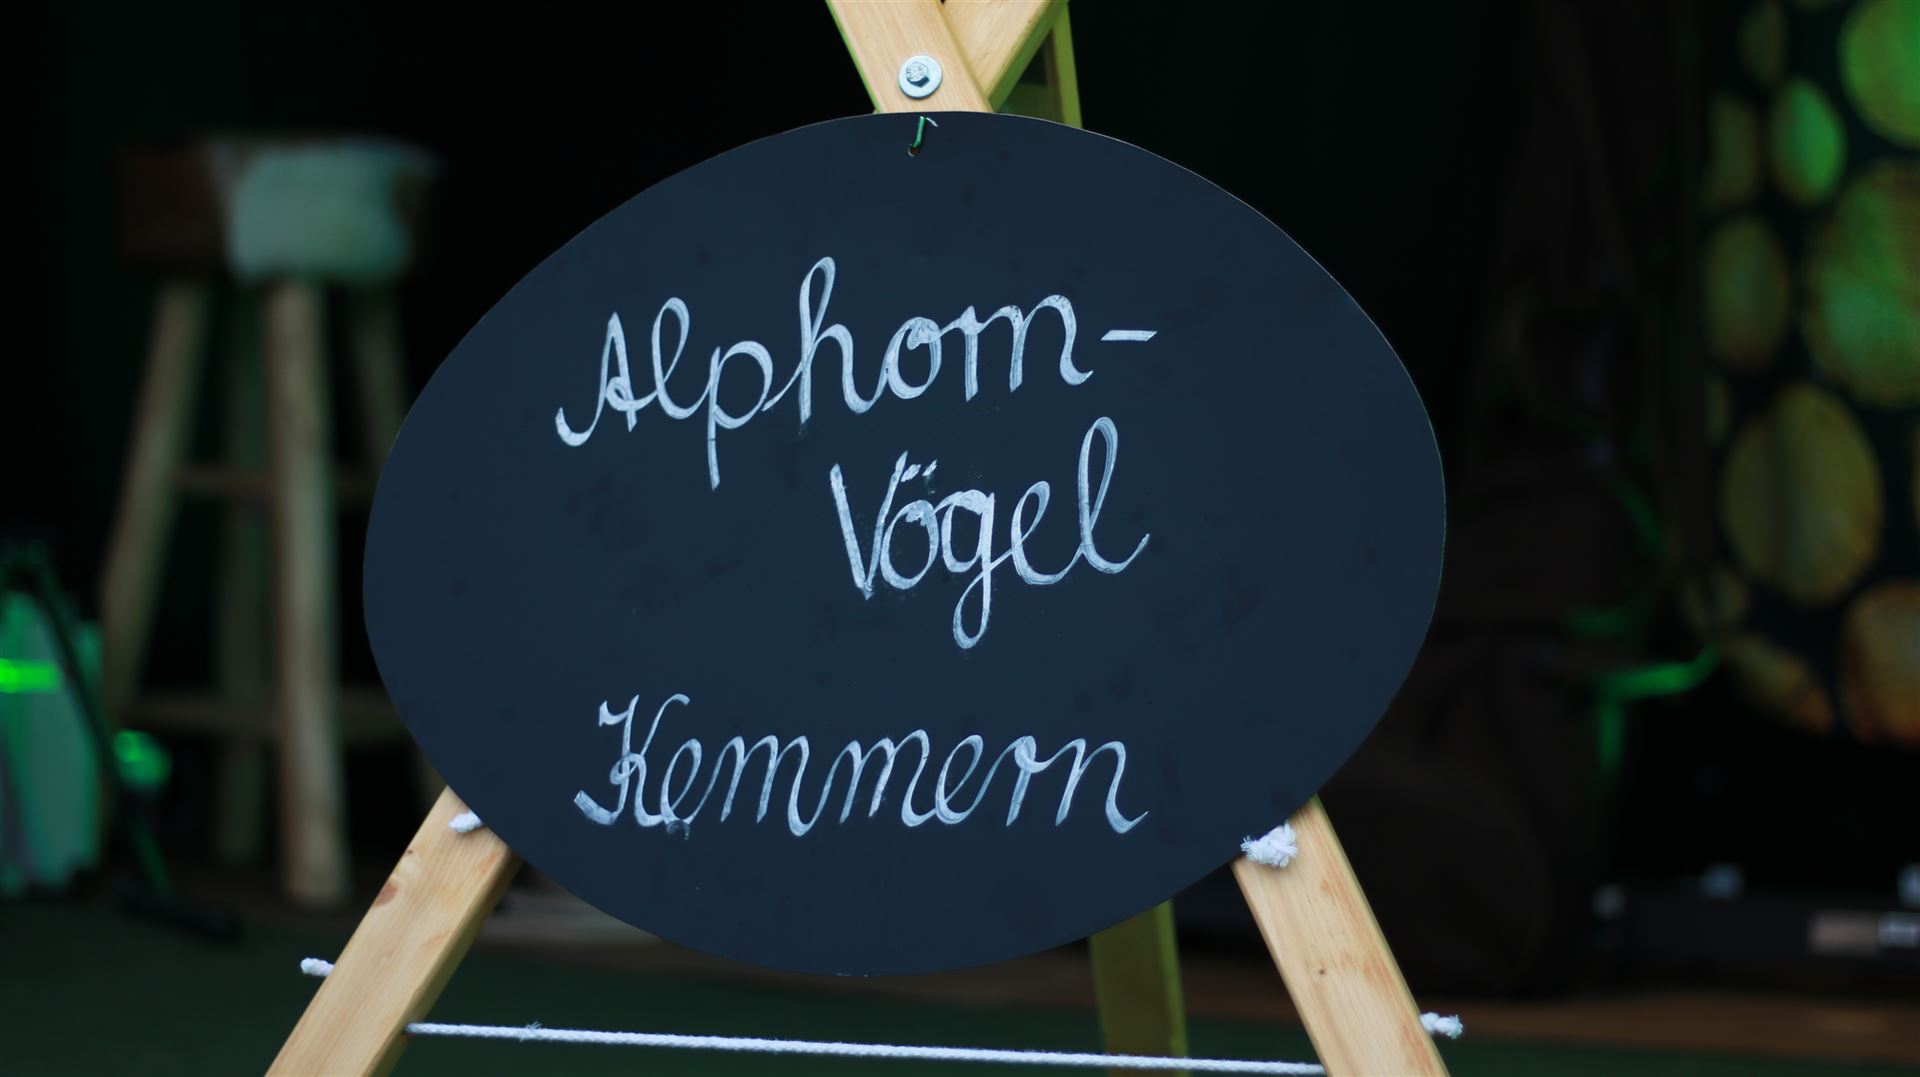 Alphorn-
Vögel
Kemmern